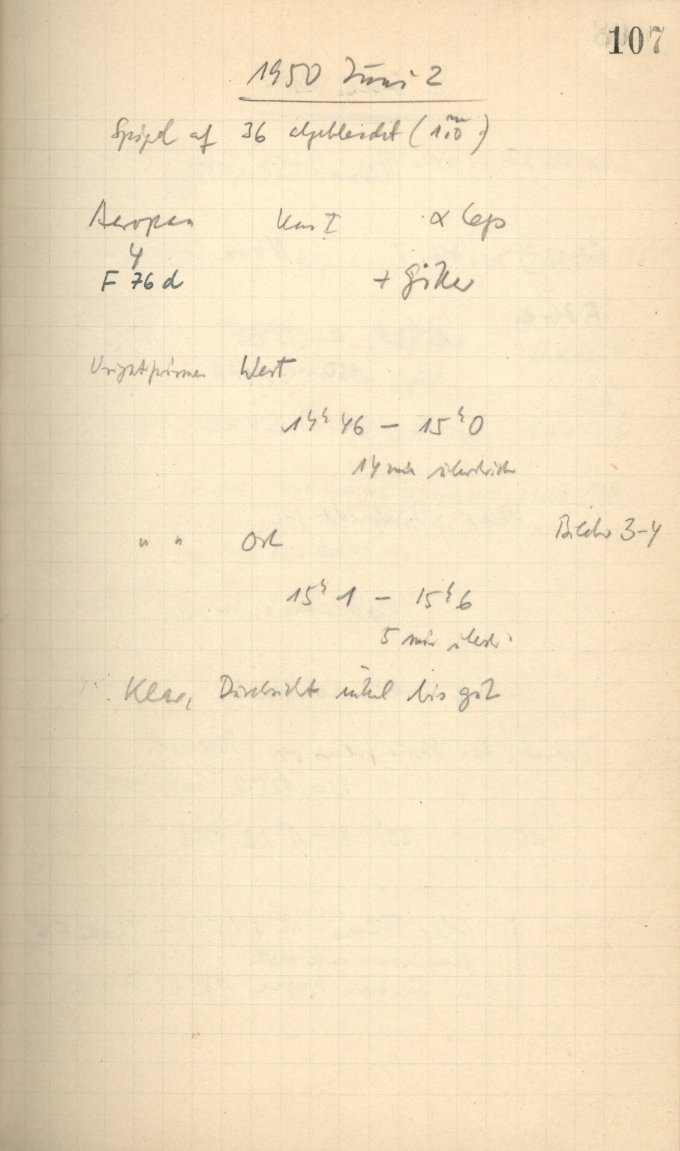 107
1950 Juni 2
Spiegel auf 36 abgeblendet (1,0 m)
Aeropan Kas I α Cep
4
F 76 d + Gitter
West
14h 46 – 15h 0
14 min
" " Ost Bilder 3-4
15h 1 – 15h 6
5 min
Klar, Durchsicht mittel bis gut